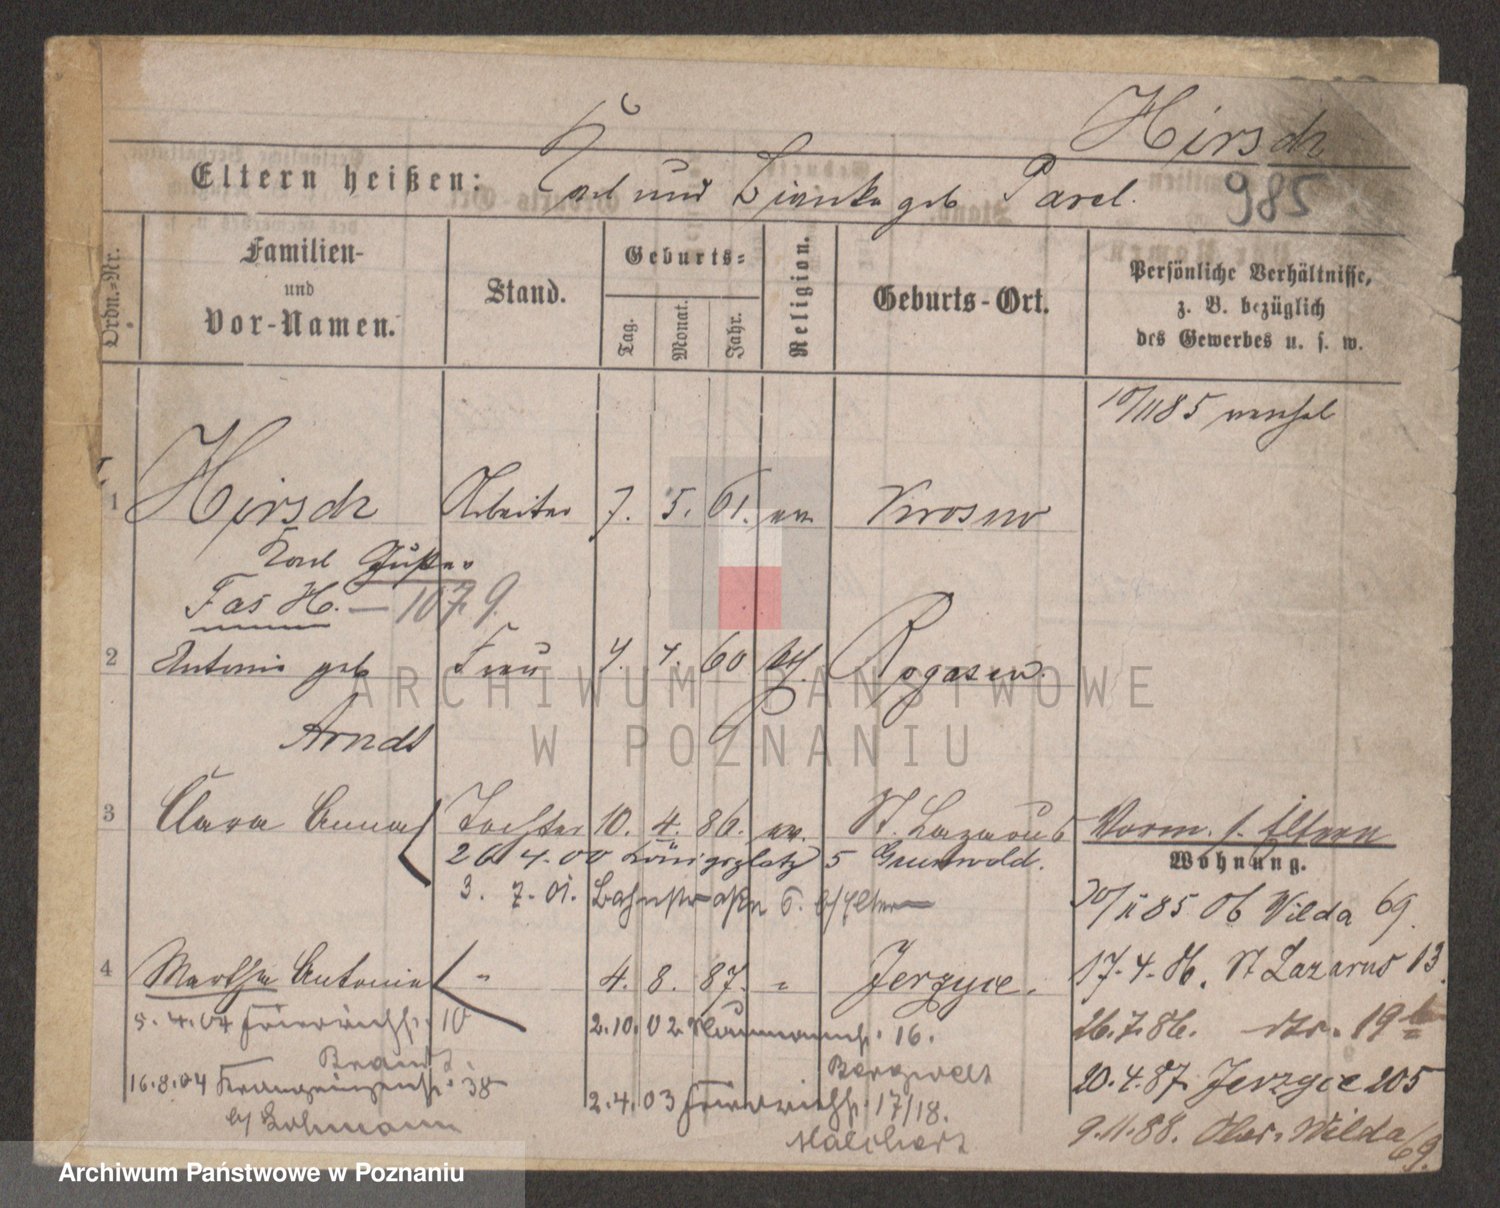 Hirsch
Eltern heißen: Karl und Bianka geb Pavel.
985
Ordn.-Nr.
Familien-
und
Vor-Namen.
Stand.
Geburts-
Tag.
Monat.
Jahr.
Religion.
Geburts-Ort.
Persönliche Verhältnisse,
z. B. bezüglich
des Gewerbes u. s. w.
10/11 85
1 Hirsch Arbeiter 7. 5. 61. ev. Krosno
Karl
Fas H. — 107.9.
2 Antonie geb Frau 60 kth. Rogasen.
Arndt
3 Clara Anna Tochter 10. 4. 86. ev. St. Lazarus Vorm. s. Eltern
26 4.00 Königsplatz 5 Grunwald.
Wohnung.
3. 7. 01. Bahnstraße 6. b/Eltern
10/11 85 Ob Wilda 69.
4 Martha Antonie " 4. 8. 87. " Jerzyce.
17.4.86. St Lazarus 13.
5.4.04 Friedrichstr. 10
2.10.02 Naumannstr. 16.
26.7.86. dto. 19b
Brandt
Bergwelt
16.8.04 38
20.4.87. Jerzyce 205
2.4.03 Friedrichstr. 17/18.
b/ Lohmann
Malchert
9.11.88. Ober Wilda 69.
ARCHIWUM PAŃSTWOWE
W POZNANIU
Archiwum Państwowe w Poznaniu